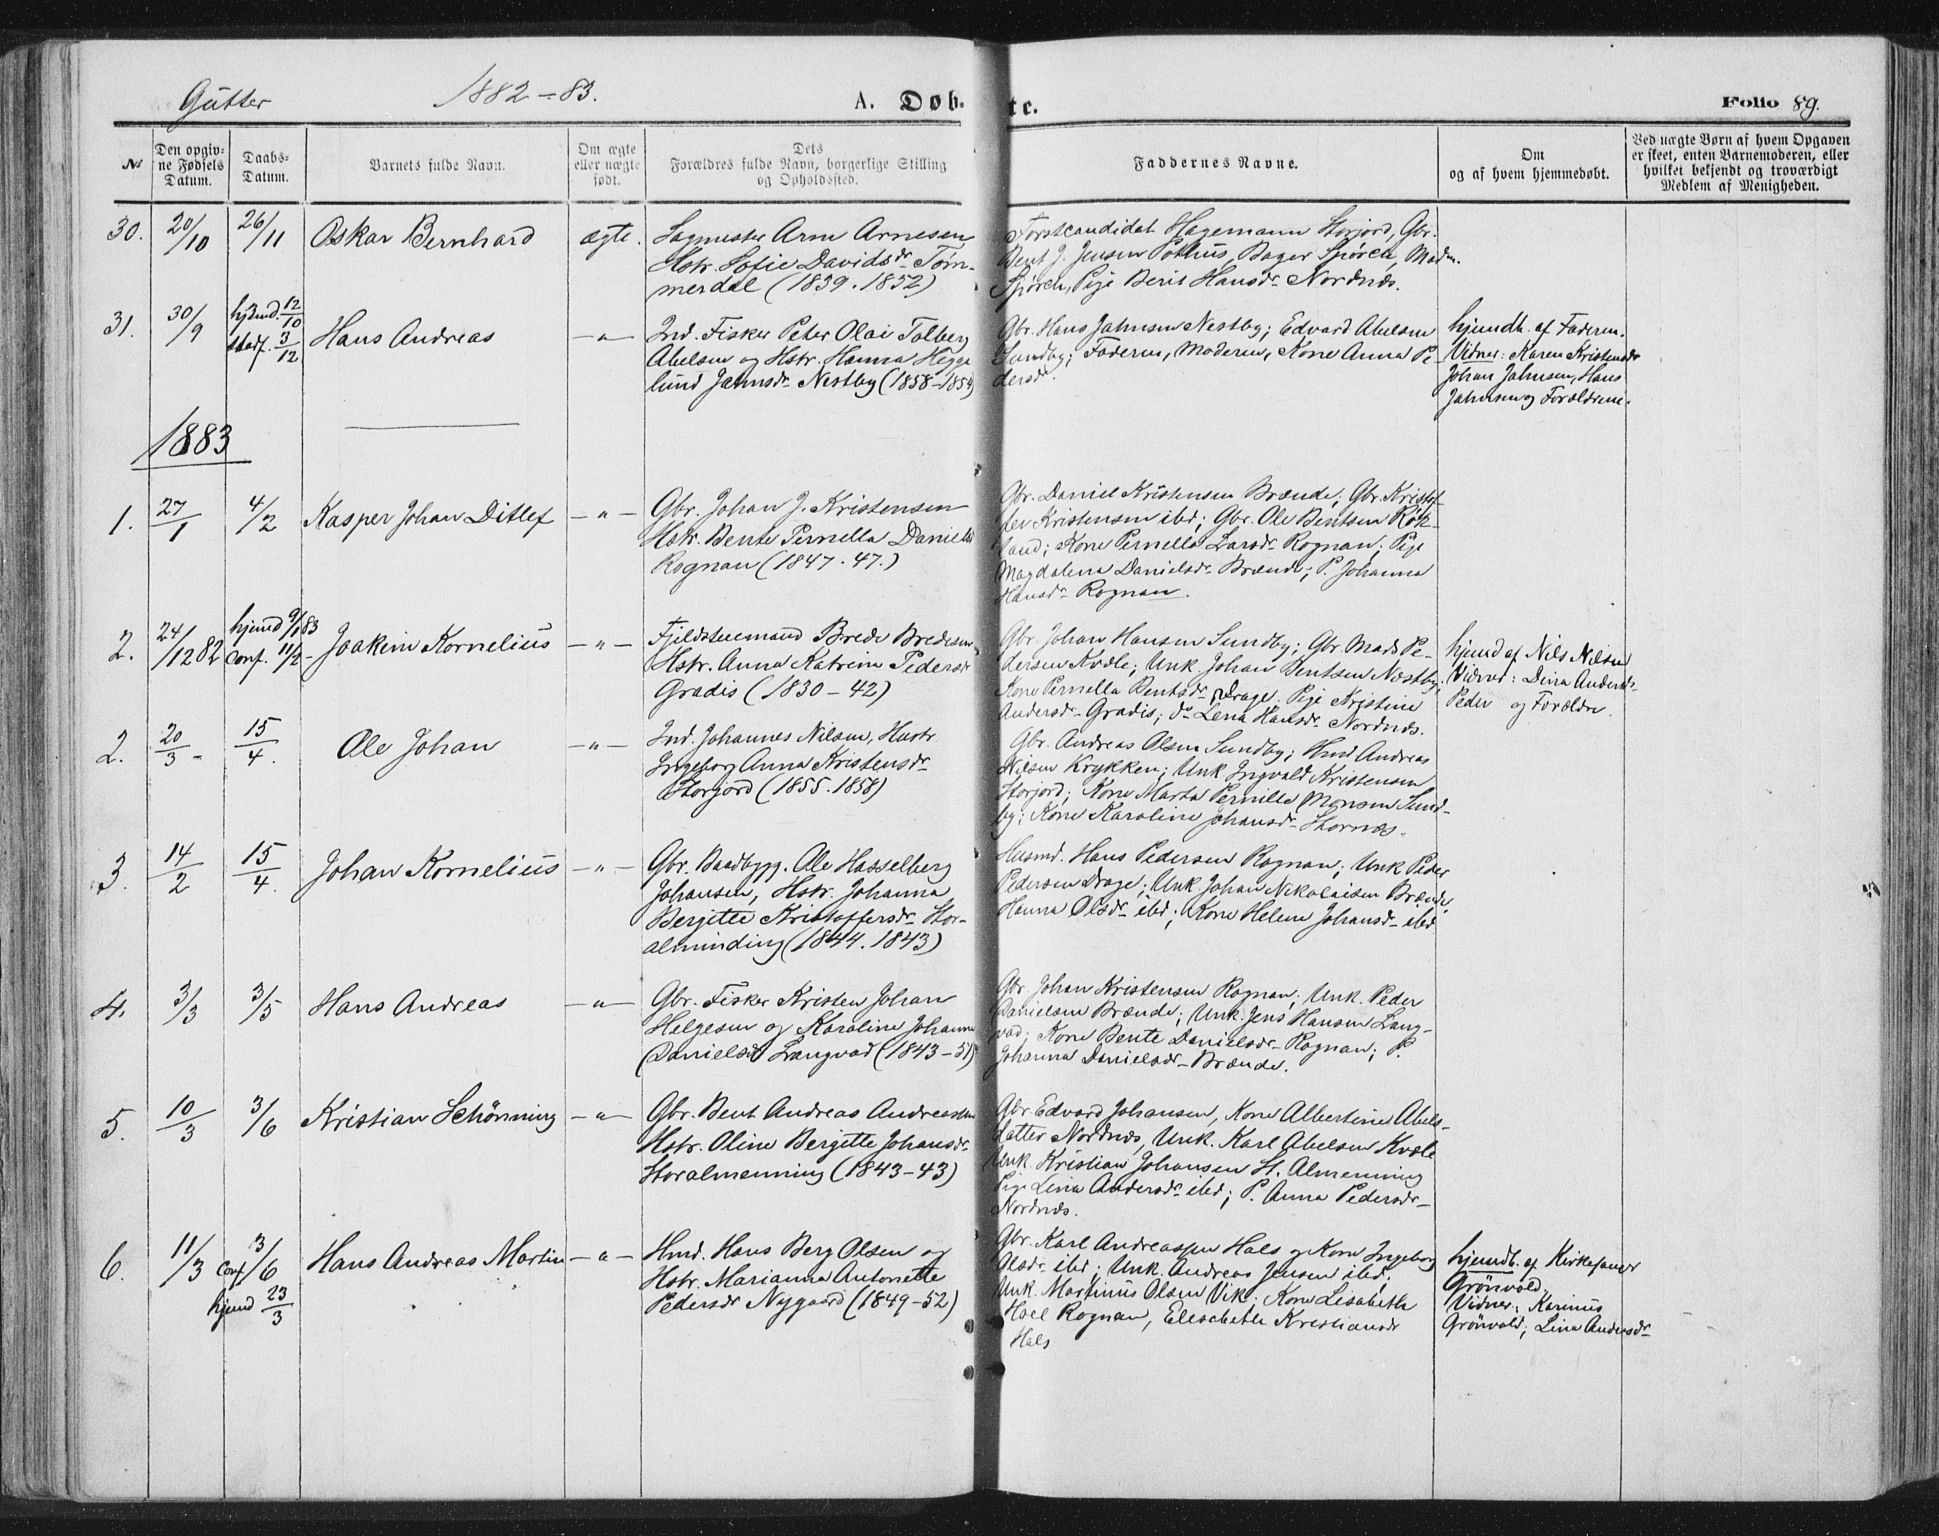 Gutter 1882-83. A. Døb- te. Folio 89.
No
Den opgiv-
ne Fødsels
Datum.
Daabs-
Datum.
Barnets fulde Navn.
Om ægte
eller uægte
født.
Dets
Forældres fulde Navn, borgerlige Stilling
og Opholdssted.
Faddernes Navne.
Om
og af hvem hjemmedøbt.
Ved uægte Børn af hvem Opgaven
er skeet, enten Barnemoderen, eller
hvilket bekjendt og troværdigt
Medlem af Menigheden.
30. 20/10 26/11 Oskar Bernhard ægte.
Sagmester Arn Arnesen
Hstr. Sofie Davidsdr Tøm-
merdal (1839. 1852)
Forstcandidat Hagemann Storjord, Gbr.
Bent J. Jensen Pothus, Bager Spörch, Madm.
Spörch, Pige Berit Hansdr Nordnæs.
31. 30/9 hjemd. 12/10
stadf. 3/12
Hans Andreas -"-
Ind. Fisker Peter Olai Tolberg
Abelsen og Hstr. Hanna Hegge
lund Jahnsdr Nestby (1858-1854)
Gbr. Hans Jahnsen Nestby; Edvard Abelsen
Sundby; Faderen, Moderen, Kone Anna Pe-
dersdr.
hjemdb. af Faderen.
Vidner: Karen Kristensdr
Johan Jahnsen, Hans
Jahnsen og Forældrene.
1883
1. 27/1 4/2 Kasper Johan Ditlef -"-
Gbr. Johan J. Kristensen
Hstr. Bente Pernella Danielsd
Rognan (1847. 47.)
Gbr. Daniel Kristensen Brænde; Gbr Kristof-
fer Kristensen ibd; Gbr. Ole Bentsen Røk-
land; Kone Pernella Larsdr Rognan; Pige
Magdalena Danielsdr Brænde; P. Johanna
Hansdr Rognan.
2. 24/12 82 hjemd 9/1 83
Conf. 11/2-
Joakim Kornelius -"-
Fjeldstuemand Brede Bredesen
Hstr. Anna Katrine Pedersdr
Gradis (1830-42)
Gbr. Johan Hansen Sundby; Gbr Mads Pe-
dersen Kvæle; Unk. Johan Bentsen Næstby;
Kone Pernella Bentsdr Drage; Pige Kristine
Andersdr Gradis; do Lena Hansdr Nordnæs.
hjemd af Nils Nilsen
Vidner: Dina Andersdr
Peder og Forældre.
2. 20/3 - 15/4. Ole Johan -"-
Ind. Johannes Nilsen, Hustr.
Ingeborg Anna Kristensdr
Storjord (1855. 1858)
Gbr. Andreas Olsen Sundby; Hmd Andreas
Nilsen Krykken; Unk Ingvald Kristensen
Storjord; Kone Marta Pernille Monsen Sund-
by; Kone Karoline Johansdr Stornæs.
3. 14/2 15/4. Johan Kornelius -"-
Gbr. Baadbygg. Ole Hasselberg
Johansen, Hstr. Johanna
Bergitte Kristoffersdr Stor-
alminding (1844. 1843)
Husmd. Hans Pedersen Rognan; Unk Peder
Pedersen Drage; Unk Johan Nikolaisen Brænde,
Hanna Olsdr ibd; Kone Helene Johansdr ibd
4. 3/3 3/5 Hans Andreas -"-
Gbr. Fisker Kristen Johan
Helgesen og Karoline Johanna
Danielsdr Langvad (1843-51)
Gbr Johan Kristensen Rognan; Unk. Peder
Danielsen Brænde; Unk. Jens Hansen Lang-
vad; Kone Bente Danielsdr Rognan; P.
Johanna Danielsdr Brænde.
5. 10/3 3/6 Kristian Schönning -"-
Gbr. Bent Andreas Andreassen
Hstr. Oline Bergitte Johansdr
Storalmenning (1843-43)
Gbr Edvard Johansen, Kone Albertine Abels-
datter Nordnæs, Unk. Karl Abelsen Kvæle
Unk. Kristian Johansen St. Almenning
Pige Lina Andersdr ibd; P. Anna Pedersdr
Nordnæs.
6. 11/3 Conf 3/6
hjemd 23/3
Hans Andreas Martin -"-
Hmd. Hans Berg Olsen og
Hstr. Marianna Antonette
Pedersdr Nygaard (1849-52)
Gbr. Karl Andreassen Hals og Kone Ingeborg
Olsdr ibd; Unk. Andreas Jensen ibd;
Unk. Martinus Olsen Vik. Kone Lisabeth
Hoel Rognan, Elisabeth Kristiansdr
Hals
hjemdb. af Kirkesanger
Grönvold.
Vidner: Karinus
Grönvold; Lina Andersdr